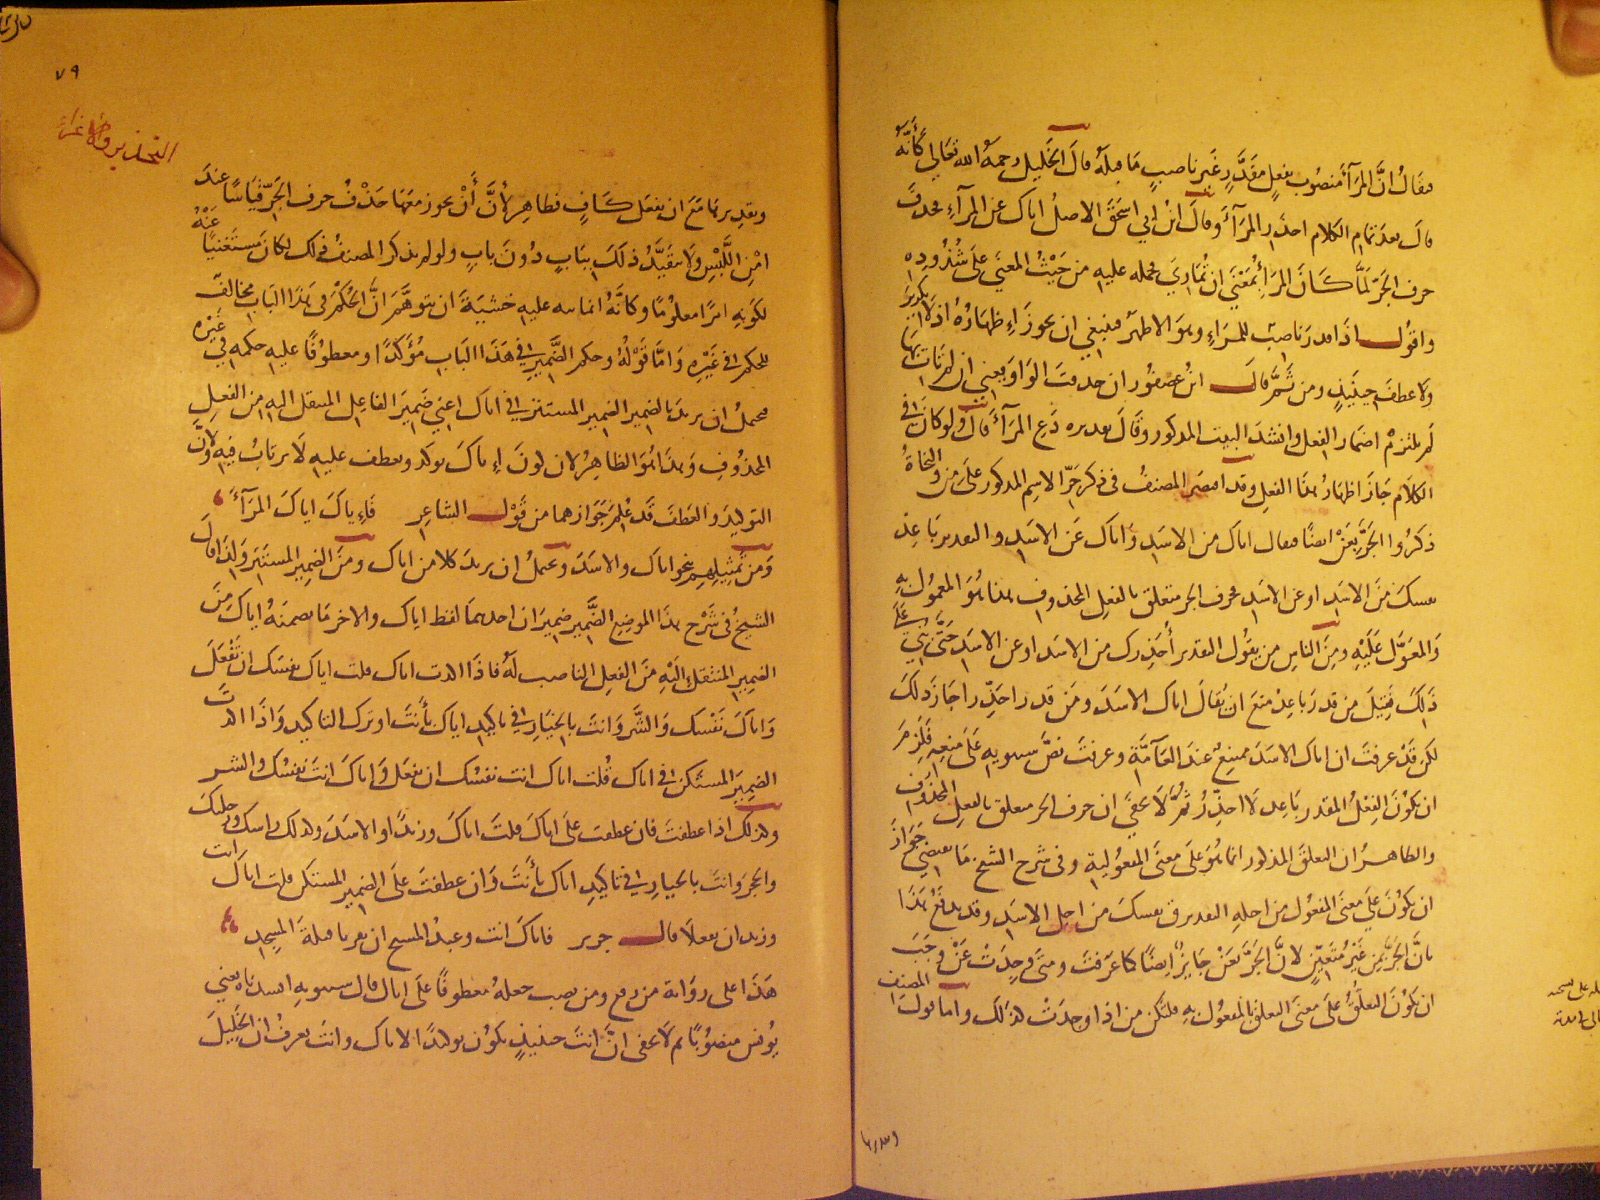 فقال ان المرآء منصوب بفعل مقدر غير ناصب ما قبله قال الخليل رحمه الله تعالى كأنه
قال بعد تمام الكلام احذر المرآء وقال ابن ابي اسحق الاصل اياك عن المرآء فحذف
حرف الجر لما كان المراء بمعنى ان تماري فحمله عليه من حيث المعنى على شذوذه
واقول اذا قدر ناصب للمراء وهو الاظهر فينبغي ان يجوز اظهاره اذ لا تكرير
ولا عطف حينئذ ومن ثم قال ابن عصفور ان حذفت الواو يعني ان لم تات بها
لم يلتزم اضمار الفعل وانشد البيت المذكور وقال تقديره دع المرآء قال ولو كان في
الكلام جاز اظهار هذا الفعل وقد اقتصر المصنف في ذكر جر الاسم المذكور على من والنحاة
ذكروا الجر بعن ايضا فقال اياك من الاسد واياك عن الاسد والتقدير باعد
نفسك من الاسد او عن الاسد فحرف الجر متعلق بالفعل المحذوف هذا هو المعمول به
والمعول عليه ومن الناس من يقول التقدير أحذرك من الاسد او عن الاسد حتى بني على
ذلك فقيل من قدر باعد منع ان يقال اياك الاسد ومن قدر احذر اجاز ذلك
لكن قد عرفت ان اياك الاسد ممتنع عند العامة وعرفت نص سيبويه على منعه فلزم
ان يكون الفعل المقدر باعد لا احذر ثم لا يخفى ان حرف الجر متعلق بالفعل المحذوف
والظاهر ان التعلق المذكور انما هو على معنى المفعولية وفي شرح الشيخ ما يقتضي جواز
ان يكون على معنى المفعول من اجله التقدير ق نفسك من اجل الاسد وقد يدفع هذا
بان الجر بمن غير متعين لان الجر بعن جايز ايضا كما عرفت ومتى وجدت عن وجب
ان يكون التعلق على معنى التعلق بالمفعول به فلتكن من اذا وجدت كذلك واما قول المصنف
وتقديرها
٧٩
التحذير والاغراء
وتقديرها مع ان يفعل كاف فظاهر لأن أن يجوز معها حذف حرف الجر قياسا عند
امن اللبس ولا يتقيد ذلك بباب دون باب ولو لم يذكر المصنف ذلك لكان مستغنيا عنه
لكونه امرا معلوما وكانه انما نبه عليه خشية ان يتوهم ان الحكم في هذا الباب مخالف
للحكم في غيره واما قوله وحكم الضمير في هذا الباب مؤكدا ومعطوفا عليه حكمه في غيره
فيحمل ان يريد بالضمير الضمير المستتر في اياك اعني ضمير الفاعل المنتقل اليه من الفعل
المحذوف وهذا هو الظاهر لان كون اياك يوكد ويعطف عليه لا يرتاب فيه ولان
التوكيد والعطف قد علم جوازهما من قول الشاعر فاياك اياك المرآء
ومن تمثيلهم بنحو اياك والاسد ويحتمل ان يريد كلا من اياك ومن الضمير المستتر ولذا قال
الشيخ في شرح هذا الموضع الضمير ضميران احدهما لفظ اياك والاخر ما تضمنه اياك من
الضمير المنتقل اليه من الفعل الناصب له فاذا اكدت اياك قلت اياك نفسك ان تفعل
واياك نفسك والشر وانت بالخيار في تاكيد اياك بأنت او ترك التاكيد واذا اكدت
الضمير المستكن في اياك قلت اياك انت نفسك ان تفعل واياك انت نفسك والشر
وكذلك اذا عطفت فان عطفت على اياك قلت اياك وزيدا والاسد وكذلك راسك ورجليك
والحجر وانت بالخيار في تاكيد اياك بأنت وان عطفت على الضمير المستكن قلت اياك انت
وزيد ان تفعلا قال جرير فاياك انت وعبد المسيح ان تقربا قبلة المسجد
هذا على رواية من رفع ومن نصب جعله معطوفا على اياك قال سيبويه انشدناه يعني
يونس منصوبا ثم لا يخفى ان انت حينئذ يكون توكيدا لاياك وانت تعرف ان الخليل